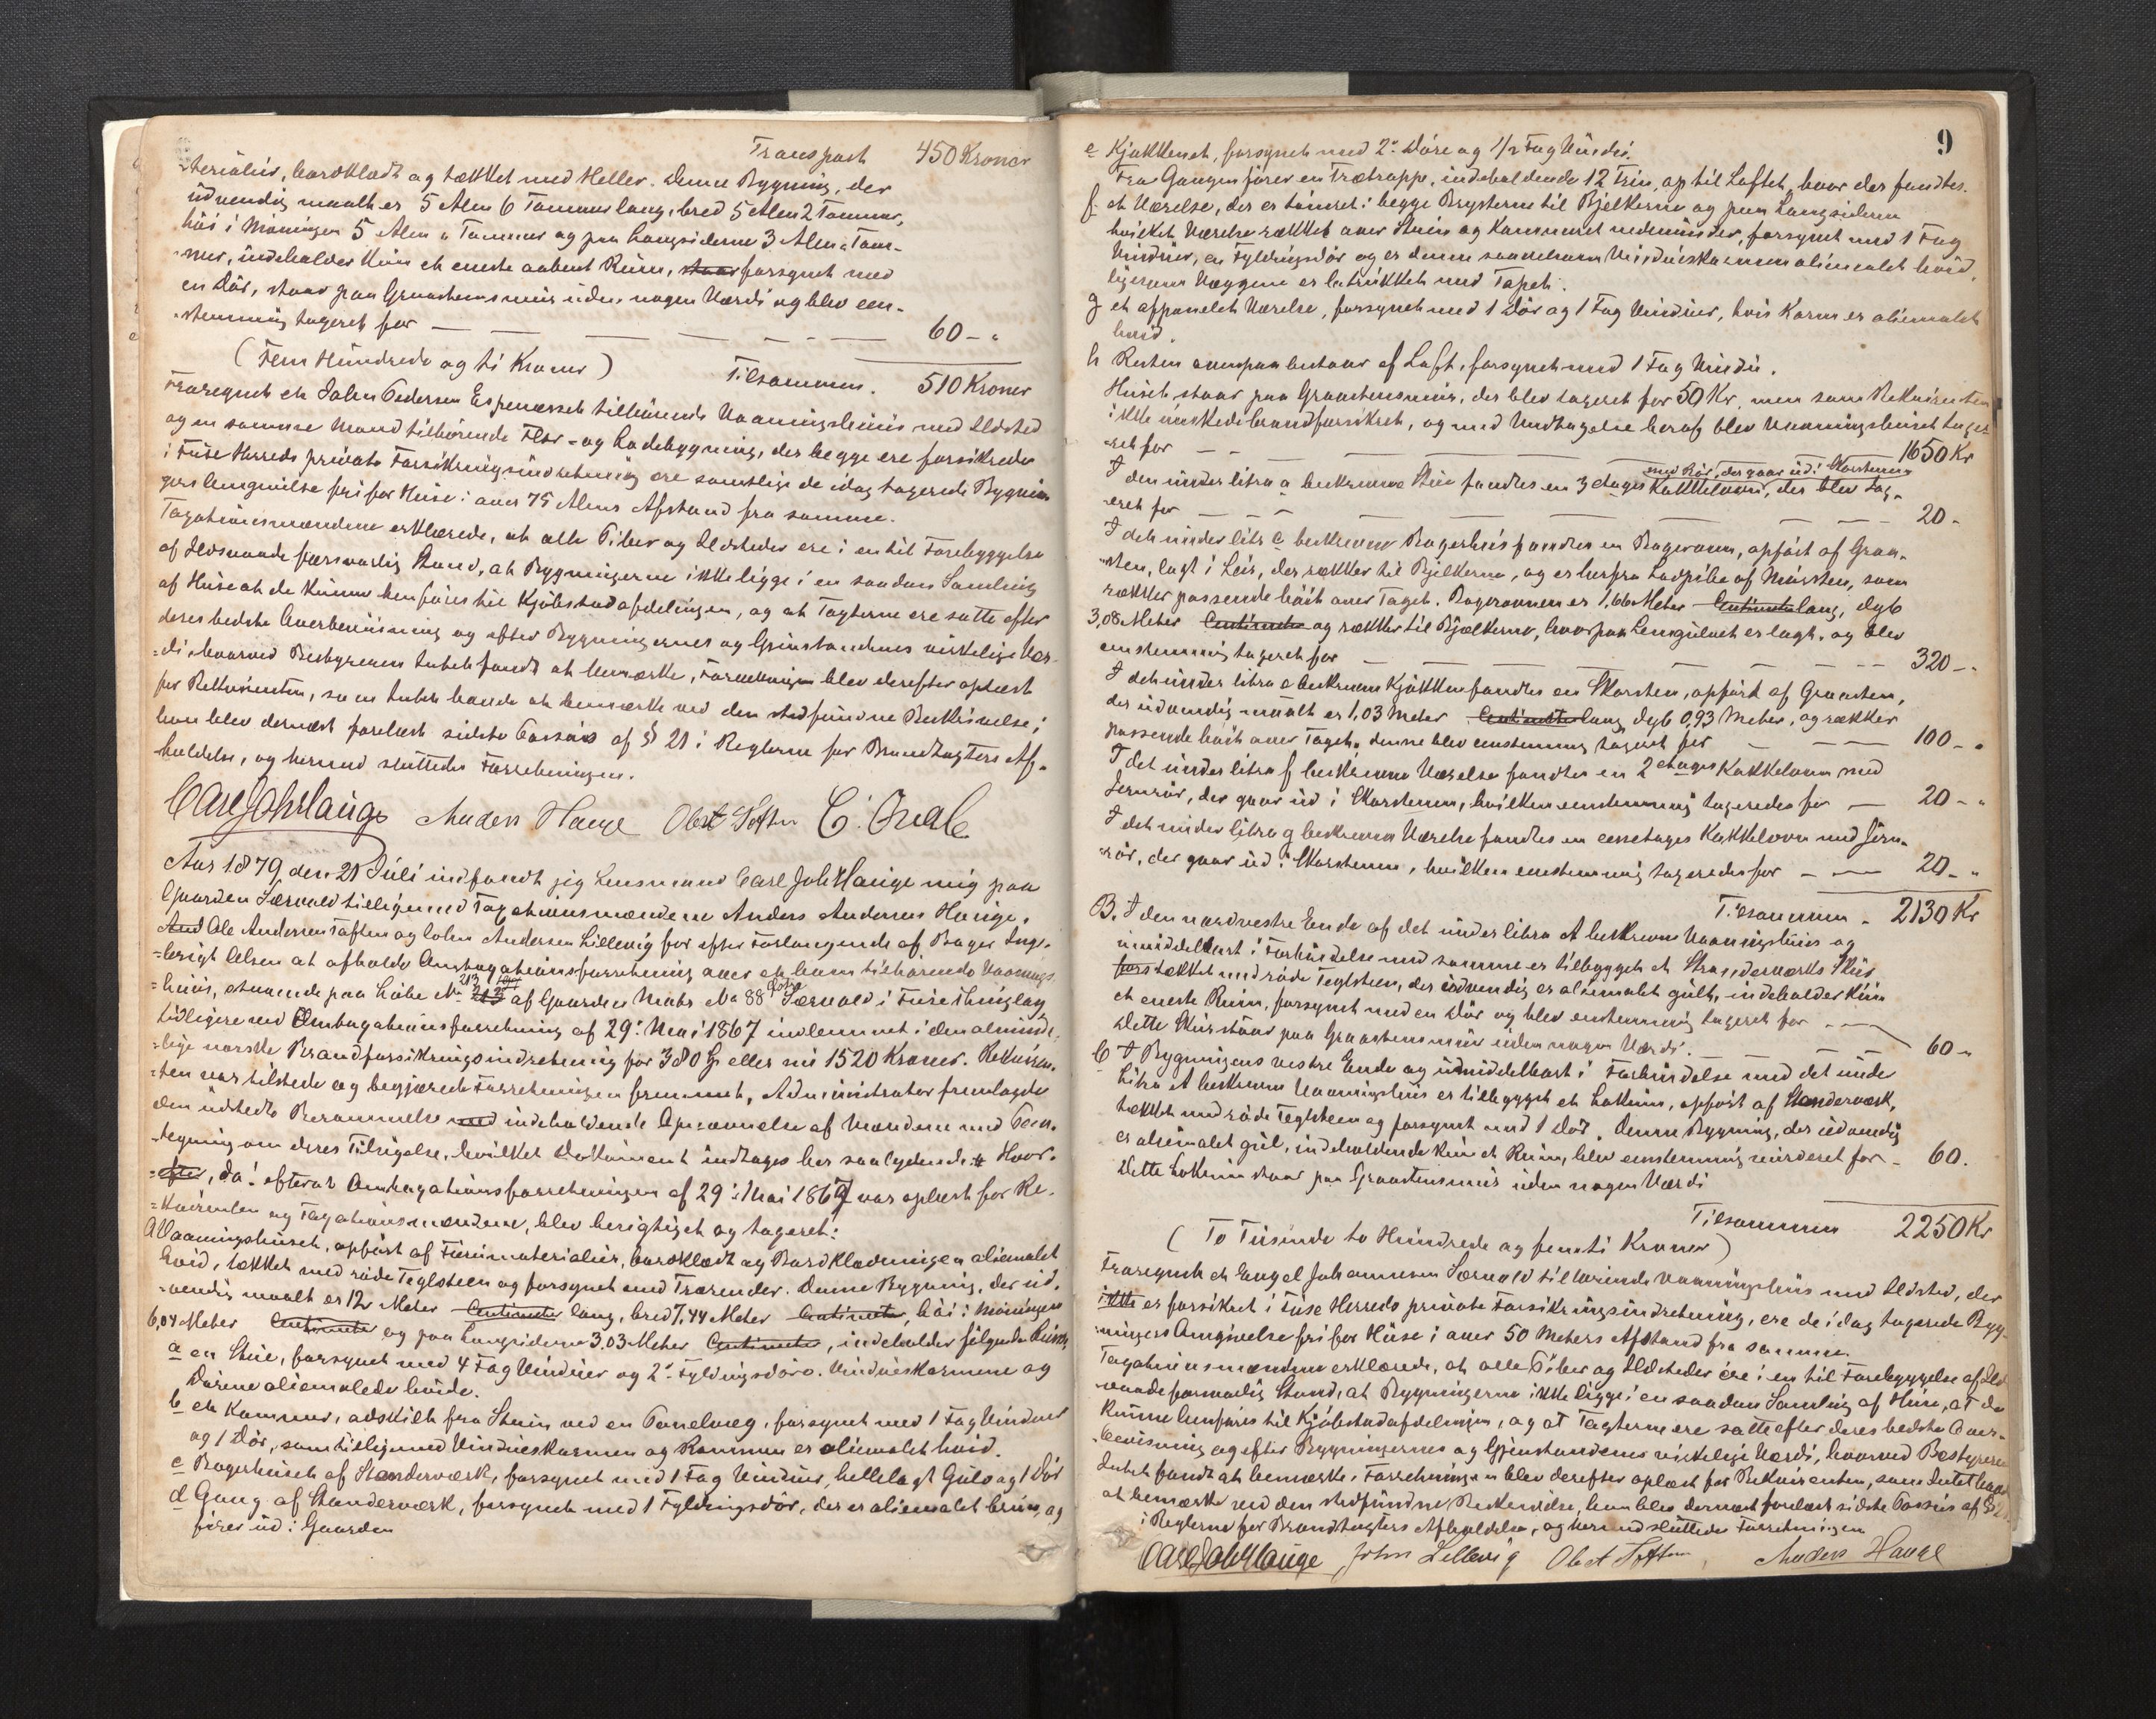 Transport 450 Kroner
-terialier, bordklædt og tækket med Heller. Denne Bygning, der
udvendig maalt er 5 Alen 6 Tommer lang, bred 5 Alen 2 Tommer,
høi i Møningen 5 Alen " Tommer og paa Langsiderne 3 Alen " Tom-
mer, indeholder kun et eneste aabent Rum, staar forsynet med
en Dør, staar paa Graastensmur uden nogen Værdi og blev een-
stemmig taxeret for — — — — — — 60 - "
(Fem Hundrede og ti Kroner) Tilsammen. 510 Kroner
Fraregnet et John Pedersen Espenæsset tilhørende Vaaningshuus med Ildsted
og en samme Mand tilhørende Flor- og Ladebygning, der begge ere forsikrede
i Fuse Herreds private Forsikringsindretning ere samtlige de idag taxerede Bygnin-
gers Omgivelse fri for Huse i over 75 Alens Afstand fra samme.
Taxationsmændene erklærede, at alle Piber og Ildsteder ere i en til Forebyggelse
af Ildsvaade forsvarlig Stand, at Bygningerne ikke ligge i en saadan Samling
af Huse at de kunne henføres til Kjøbstadafdelingen, og at Taxterne ere satte efter
deres bedste Overbeviisning og efter Bygningernes og Gjenstandenes virkelige Vær-
di, hvorved Bestyreren Intet fandt at bemærke. Forretningen blev derefter oplæst
for Rekvirenten, som Intet havde at bemærke ved den stedfundne Beskrivelse;
han blev dernæst forelæst sidste Passus af § 21 i Reglerne for Brandtaxters Af-
holdelse, og hermed sluttedes Forretningen.
Carl Joh Hauge Anders Hauge Ole A Toften
Aar 1879 den 21 Juli indfandt sig Lensmand Carl Joh Hauge mig paa
Gaarden Særvold tilligemed Taxationsmændene Anders Andersen Hauge,
And Ole Andersen Toften og John Andersen Lillevig for efter Forlangende af Bager Inge-
brigt Olsen at afholde Omtaxationsforretning over et ham tilhørende Vaanings-
huus, staaende paa Løbe No 213 af Gaarden Matr No 88 Særvold i Fuse Thinglag
tidligere ved Omtaxationsforretning af 29: Mai 1867 indlemmet i den almind-
lige norske Brandforsikringsindretning for 380 Sp eller nu 1520 Kroner. Rekviren-
ten var tilstede og begjærede Forretningen fremmet. Administrator fremlagde
den udstedte Berammelse med indeholdende Opnævnelse af Mændene med Paa-
tegning om deres Tilsigelse, hvilket Dokument indtages her saalydende: Hvor-
efter, da! efterat Omtaxationsforretningen af 29: Mai 1867 var oplæst for Re-
kvirenten og Taxationsmændene, blev berigtiget og taxeret:
A Vaaningshuset, opført af Furumaterialier, bordklædt og Bordklædningen oliemalet
hvid, tækket med røde Teglsteen og forsynet med Trærender. Denne Bygning, der ud-
vendig maalt er 12 Meter Centimeter lang, bred 7,44 Meter Centimeter, høi i Møningen
6,04 Meter Centimeter og paa Langsiderne 3,03 Meter Centimeter, indeholder følgende Rum:
a en Stue, forsynet med 4 Fag Vinduer og 2: Fyldingsdøre. Vindueskarmene og
Dørene oliemalede hvide.
b et Kammer, adskilt fra Stuen ved en Panelvæg, forsynet med 1 Fag Vinduer
og 1 Dør, som tilligemed Vindueskarmen og Rammen er oliemalet hvid.
c Bagerhuset af Stenderværk, forsynet med 1 Fag Vinduer, hellelagt Gulv og 1 Dør
d Gang af Stenderværk, forsynet med 1 Fyldingsdør, der er oliemalet brun, og
fører ud i Gaarden
9
e Kjøkkenet, forsynet med 2: Døre og 1/2 Fag Vindu.
Fra Gangen fører en Trætrappe, indeholdende 12 Trin, op til Loftet, hvor der fandtes
f. et Værelse, der er tømret i begge Brysterne til Bjelkerne og paa Langsiderne
hvilket Værelse rækker over Stuen og Kammeret nedenunder, forsynet med 1 Fag
Vinduer, en Fyldingsdør og er denne saavelsom Vindueskarmen oliemalet hvid,
ligesom Væggene er betrukket med Tapet.
g et afpanelet Værelse, forsynet med 1 Dør og 1 Fag Vinduer, hvis Karm er oliemalet
hvid.
h Resten ovenpaa bestaar af Loft, forsynet med 1 Fag Vindu.
Huset staar paa Graastensmur, der blev taxeret for 50 Kr, men som Rekvirenten
ikke ønskede brandforsikret, og med Undtagelse heraf blev Vaaningshuset taxe-
ret for — — — — — — 1650 Kr
med Rør, der gaar ud i Skorstenen
I den under litra a beskrevne Stue fandtes en 3 etages Kakkelovn, der blev tax-
eret for — — — — — — 20 -
I det under litr c beskrevne Bagerhuus fandtes en Bagerovn, opført af Graa-
sten, lagt i Leir, der rækker til Bjelkerne, og er herfra Ladpibe af Mursten, som
rækker passende høit over Taget. Bagerovnen er 1,66 Meter Centimeter lang, dyb
3,08 Meter Centimeter og rækker til Bjælkerne, hvorpaa Lemgulvet er lagt, og blev
enstemmig taxeret for — — — — — 320 - "
I det under litra e beskrevne Kjøkken fandtes en Skorsten, opført af Graasten,
der udvendig maalt er 1,03 Meter Centimeter lang, dyb 0,93 Meter, og rækker
passende høit over Taget, denne blev enstemmig taxeret for — — 100 - "
I det under litra f beskrevne Værelse fandtes en 2 etages Kakkelovn med
Jernrør, der gaar ud i Skorstenen, hvilken enstemmig taxeredes for — 20 - "
I det under litra g beskrevne Værelse fandtes en eenetages Kakkelovn med Jern-
rør, der gaar ud i Skorstenen, hvilken enstemmig taxeredes for — 20 - "
Tilsammen - 2130 Kr
B. I den nordvestre Ende af det under litra A beskrevne Vaaningshuus og
umiddelbart i Forbindelse med samme er tilbygget et Stænderværks Skur
fors tækket med røde Teglsteen, der udvendig er oliemalet gult, indeholder kun
et eneste Rum, forsynet med en Dør og blev enstemmig taxeret for — — 60 "
Dette Skur staar paa Graastensmur uden nogen Værdi.
C I Bygningens vestre Ende og umiddelbart i Forbindelse med det under
Litra A beskrevne Vaaningshuus er tilbygget et Lokum, opført af Stænderværk,
tækket med røde Teglsteen og forsynet med 1 Dør. Denne Bygning, der udvendig
er oliemalet gul, indeholdende kun et Rum, blev enstemmig vurderet for - 60.
Dette Lokum staar paa Graastensmur uden nogen Værdi
Tilsammen 2250 Kr
(To Tusinde to Hundrede og femti Kroner)
Fraregnet et Engel Johannesen Særvold tilhørende Vaaningshuus med Ildsted, der
ikke er forsikret i Fuse Herreds private Forsikringsindretning, ere de idag taxerede Byg-
ningers Omgivelse fri for Huse i over 50 Meters Afstand fra samme.
Taxationsmændene erklærede, at alle Piber og Ildsteder ere i en til Forebyggelse af Ild-
vaade forsvarlig Stand, at Bygningerne ikke ligge i en saadan Samling af Huse, at de
kunne henføres til Kjøbstadafdelingen, og at Taxterne ere satte efter deres bedste Over-
bevisning og efter Bygningernes og Gjenstandenes virkelige Værdi, hvorved Bestyreren
Intet fandt at bemærke. Forretningen blev derefter oplæst for Rekvirenten, som Intet havde
at bemærke ved den stedfundne Beskrivelse, han blev dernæst forelæst sidste Passus af § 21
i Reglerne for Brandtaxters Afholdelse, og hermed sluttedes Forretningen
Carl Joh Hauge John Lillevig Ole A Toften Anders Hauge